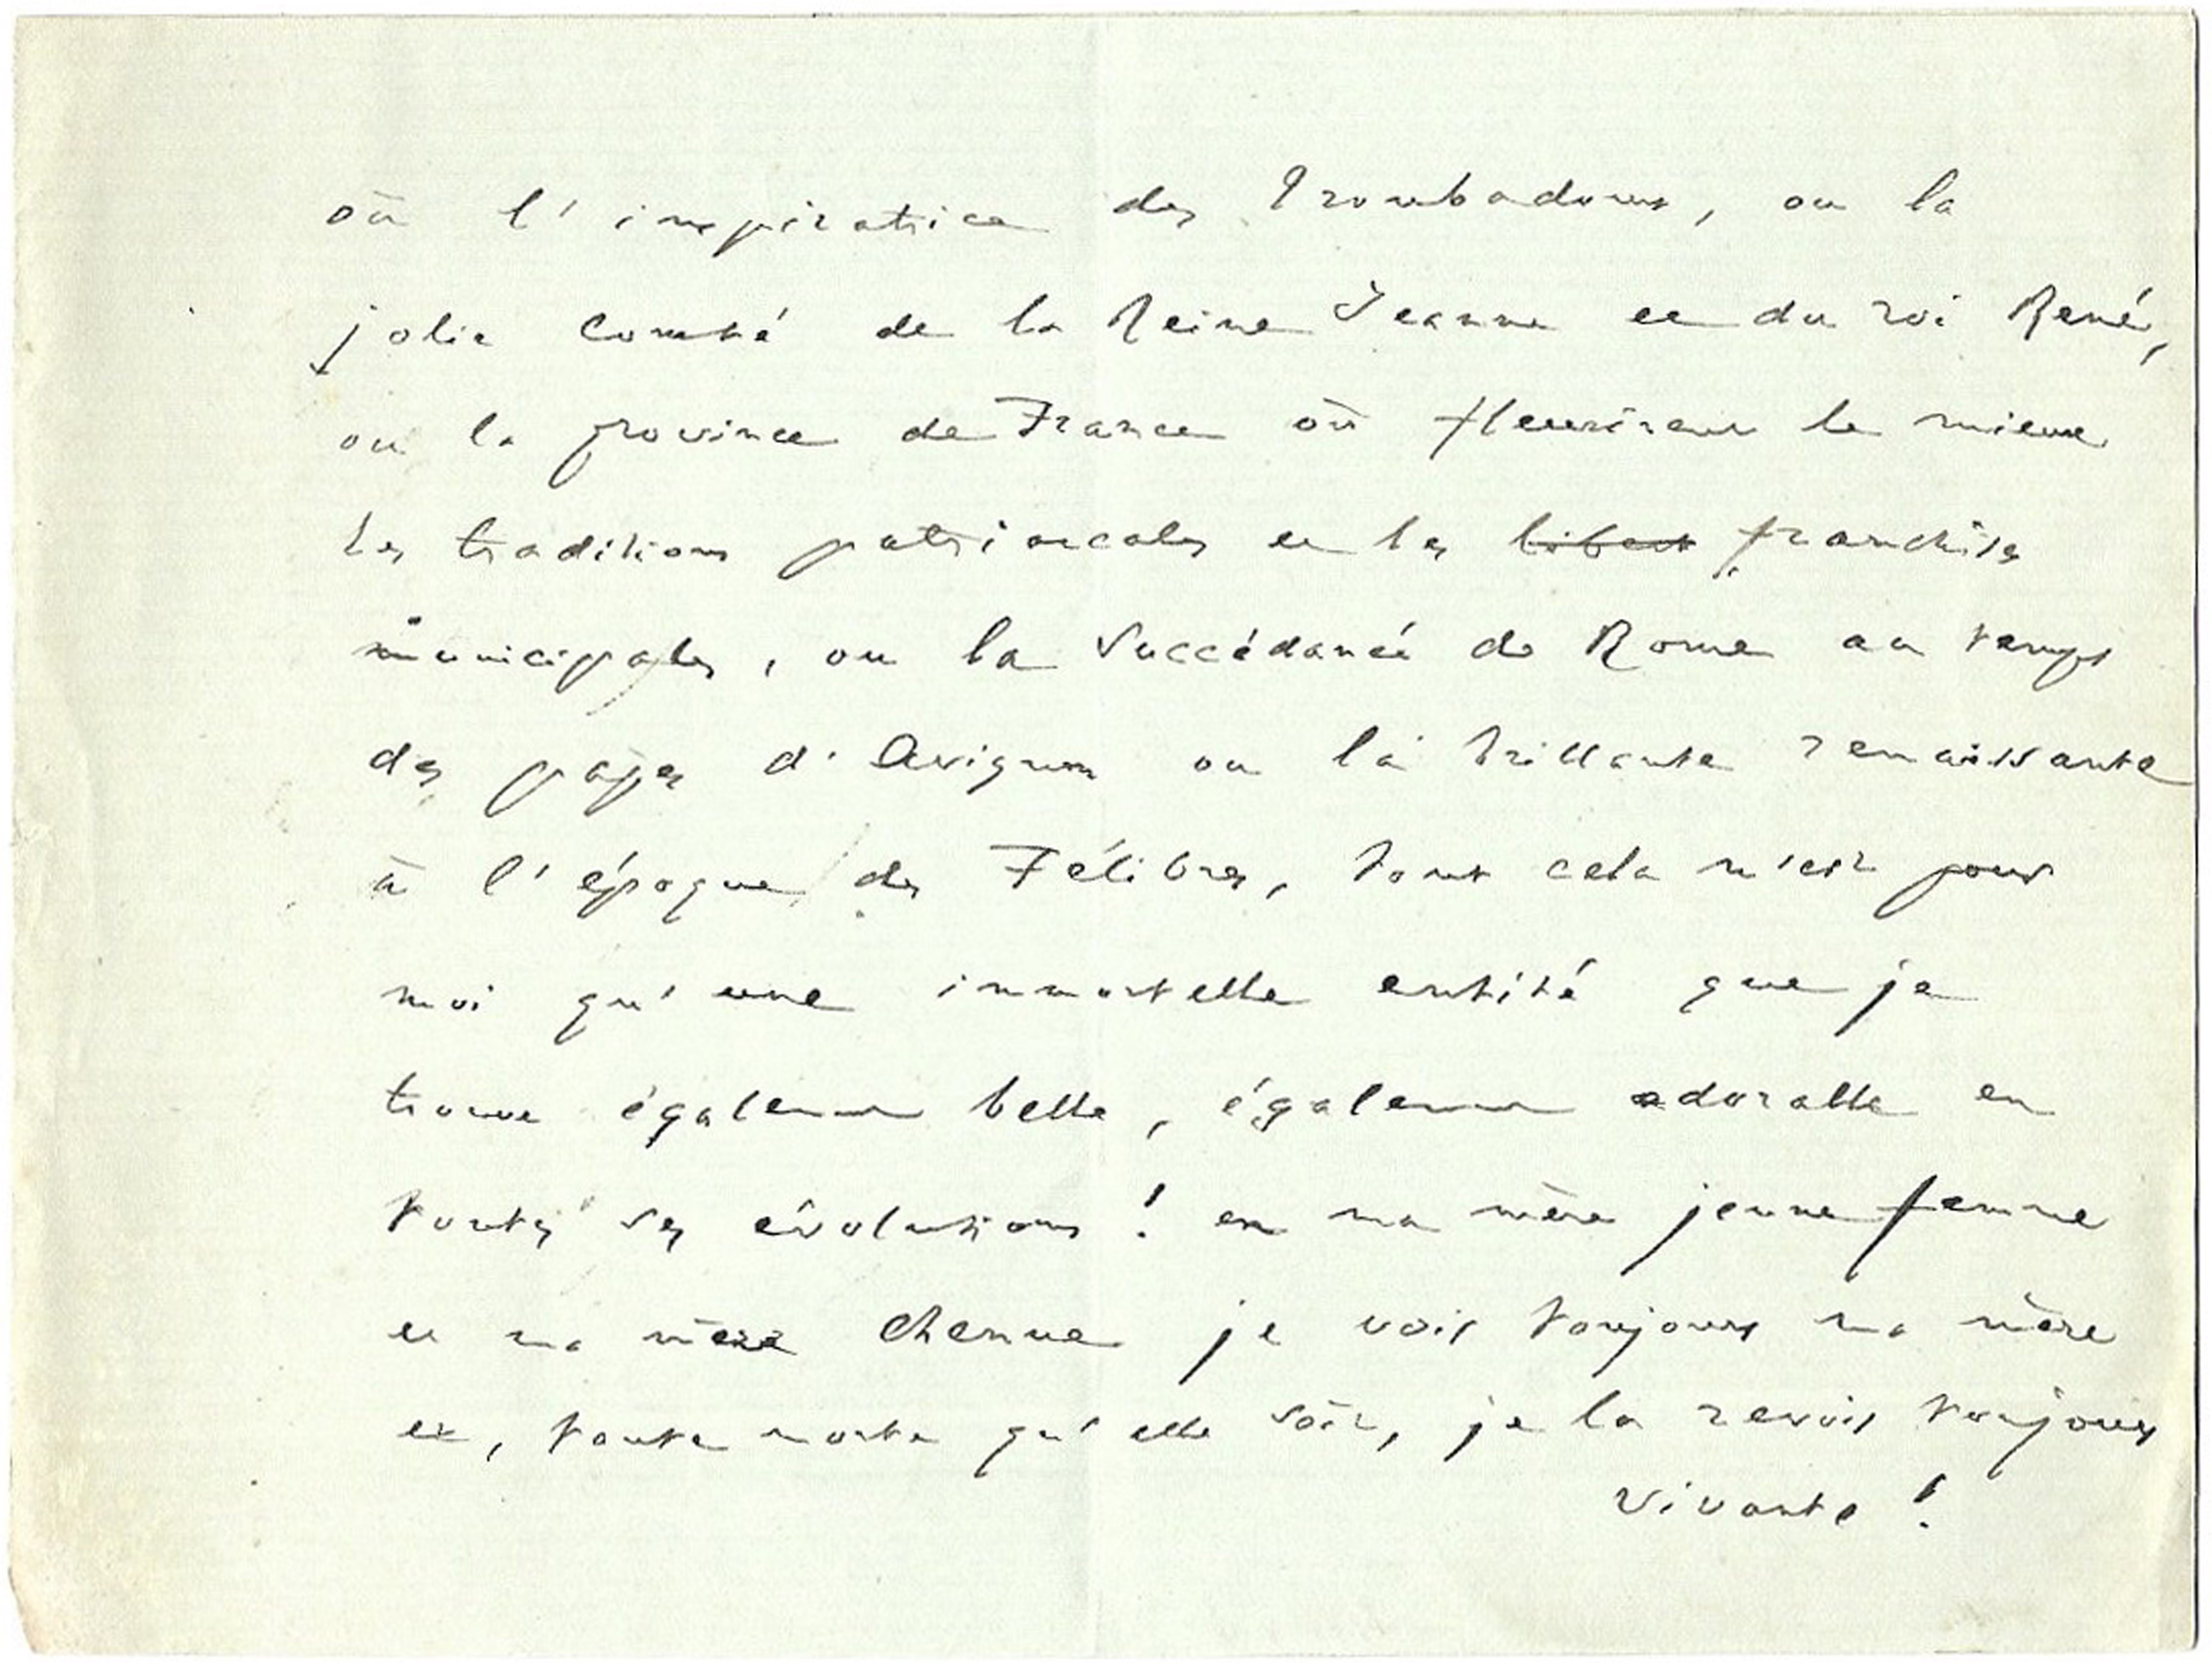 où l'inspiratrice des Troubadours, ou la
jolie Comté de la Reine Jeanne et du roi René,
ou la province de France où fleurirent le mieux
les traditions patriarcales et les franchises
municipales, ou la succédanée de Rome au temps
des papes d'Avignon ou la brillante renaissante
à l'époque des Félibres, tout cela n'est pour
moi qu'une immortelle entité que je
trouve également belle, également adorable en
toutes ses évolutions ! en ma mère jeune femme
et ma mère chenue je vois toujours ma mère
et, toute morte qu'elle soit, je la revois toujours
vivante !